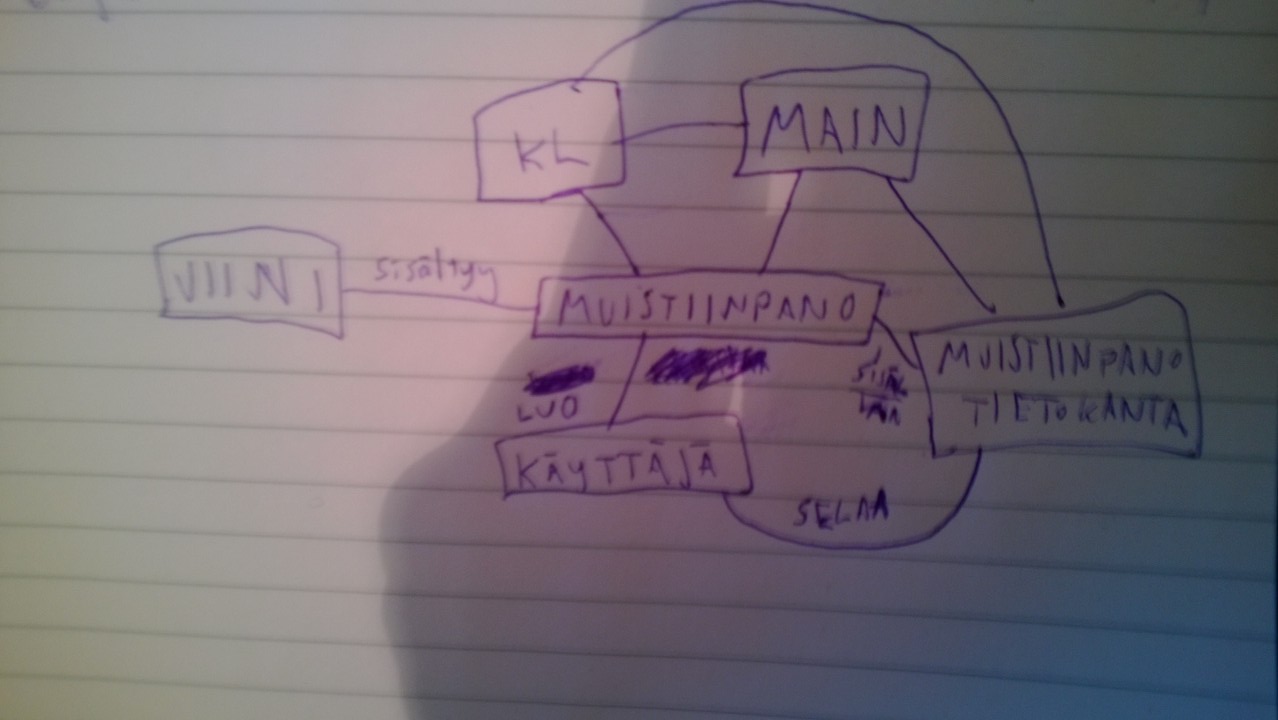 KL
MAIN
VIINI
sisältyy
MUISTIINPANO
MUISTIINPANO
TIETOKANTA
LUO
KÄYTTÄJÄ
SELAA